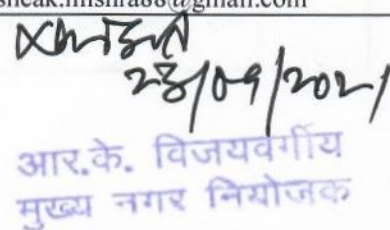 sheak.mishra88@gmail.com
23/09/2021
आर.के. विजयवर्गीय
मुख्य नगर नियोजक